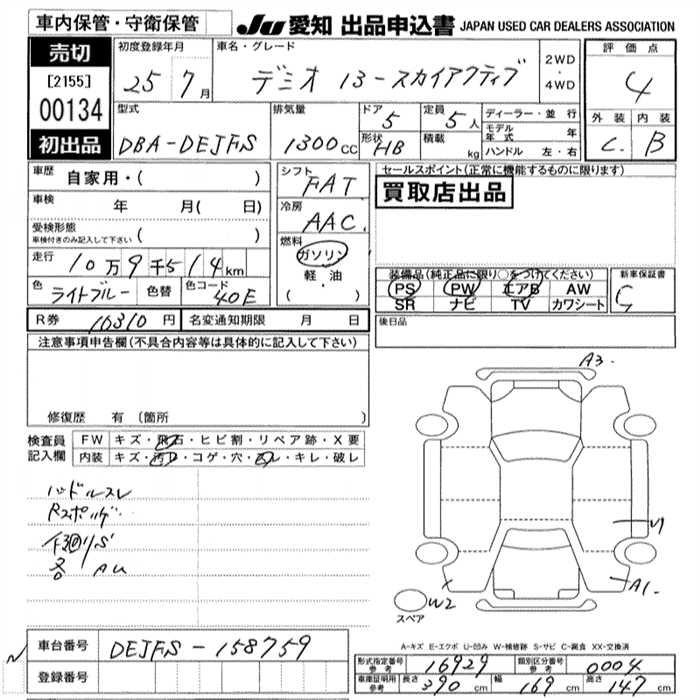 車内保管・守衛保管
JU 愛知 出品申込書 JAPAN USED CAR DEALERS ASSOCIATION
売切
[2155]
00134
初出品
初度登録年月
25 7月
車名・グレード
デミオ 13-スカイアクティブ
2WD
・
4WD
評価点
4
外装 内装
C B
型式
DBA-DEJFS
排気量
1300 CC
ドア
5
形状
HB
定員
5人
積載
kg
ディーラー・並行
モデル年式 年
ハンドル 左・右
車歴 自家用・( )
車検 年 月( 日)
受検形態
車検付きのみ記入して下さい ( )
走行 10万9千514km
色 ライトブルー 色替 色コード 40E
シフト
FAT
冷房
AAC
燃料
ガソリン
・
軽油
( ・ )
R券 10310円 名変通知期限 月 日
セールスポイント(正常に機能するものに限ります)
買取店出品
装備品(純正品に限り○をつけてください)
PS PW エアB AW
SR ナビ TV カワシート
新車保証書
後日品
注意事項申告欄(不具合内容等は具体的に記入して下さい)
修復歴 有 (箇所 )
検査員記入欄
FW キズ・飛石・ヒビ割・リペア跡・X要
内装 キズ・汚レ・コゲ・穴・スレ・キレ・破レ
ハンドルスレ
A3
A1
W2
スペア
A-キズ E-エクボ U-凹み W-補修跡 S-サビ C-腐食 XX-交換済
車台番号 DEJFS-158759
登録番号
形式指定番号 参考 16929 類別区分番号 参考 0004
車庫証明用 参考 長さ 390 cm 幅 169 cm 高さ 147 cm